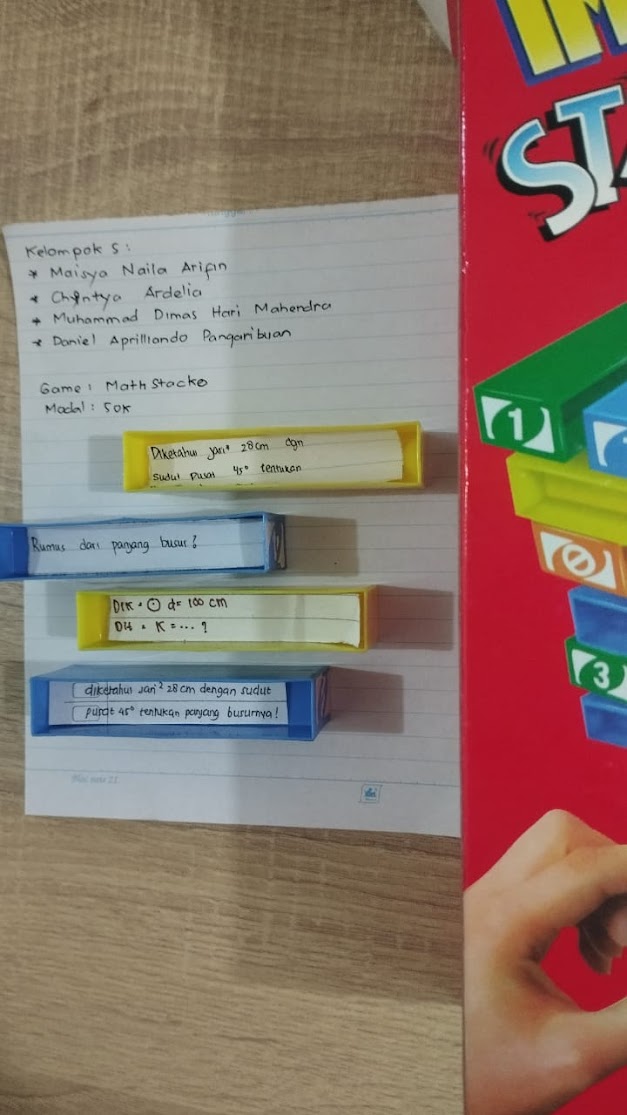 Kelompok 5 :
* Maisya Naila Arifin
* Chyntya Ardelia
* Muhammad Dimas Hari Mahendra
* Daniel Aprilliando Pangaribuan
Game : Math Stacko
Modal : 50K
Diketahui jari² 28 cm dgn
sudut pusat 45° tentukan
Rumus dari panjang busur ?
DIK : ⊙ d = 100 cm
Dit : K = ... ?
diketahui jari² 28 cm dengan sudut
pusat 45° tentukan panjang busurnya !
ST
1
0
3